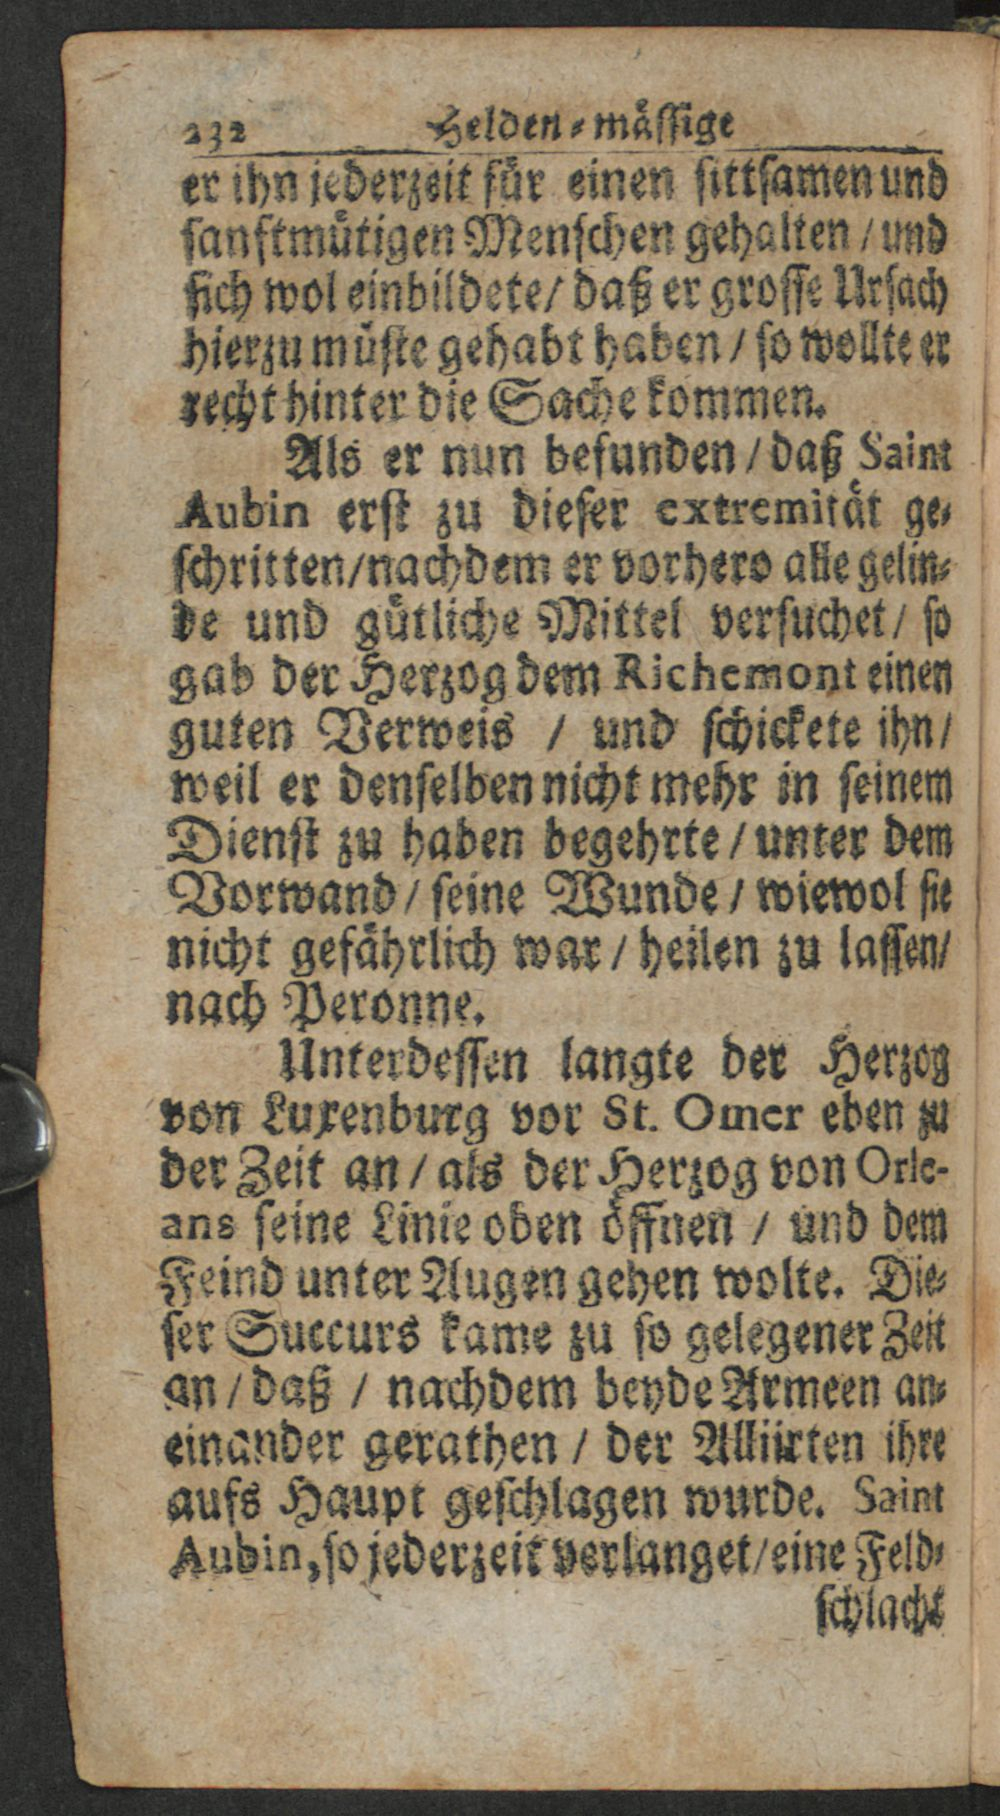 232 Helden-mässige
er ihn jederzeit für einen sittsamen und
sanftmütigen Menschen gehalten / und
sich wol einbildete / daß er grosse Ursach
hierzu müste gehabt haben / so wollte er
recht hinter die Sache kommen.
Als er nun befunden / daß Saint
Aubin erst zu dieser extremität ge-
schritten / nachdem er vorhero alle gelin-
de und gütliche Mittel versuchet / so
gab der Herzog dem Richemont einen
guten Verweis / und schickete ihn /
weil er denselben nicht mehr in seinem
Dienst zu haben begehrte / unter dem
Vorwand / seine Wunde / wiewol sie
nicht gefährlich war / heilen zu lassen /
nach Peronne.
Unterdessen langte der Herzog
von Luxenburg vor St. Omer eben zu
der Zeit an / als der Herzog von Orle-
ans seine Linie oben öffnen / und dem
Feind unter Augen gehen wolte. Die-
ser Succurs kame zu so gelegener Zeit
an / daß / nachdem beyde Armeen an-
einander gerathen / der Alliirten ihre
aufs Haupt geschlagen wurde. Saint
Aubin, so jederzeit verlanget / eine Feld-
schlacht